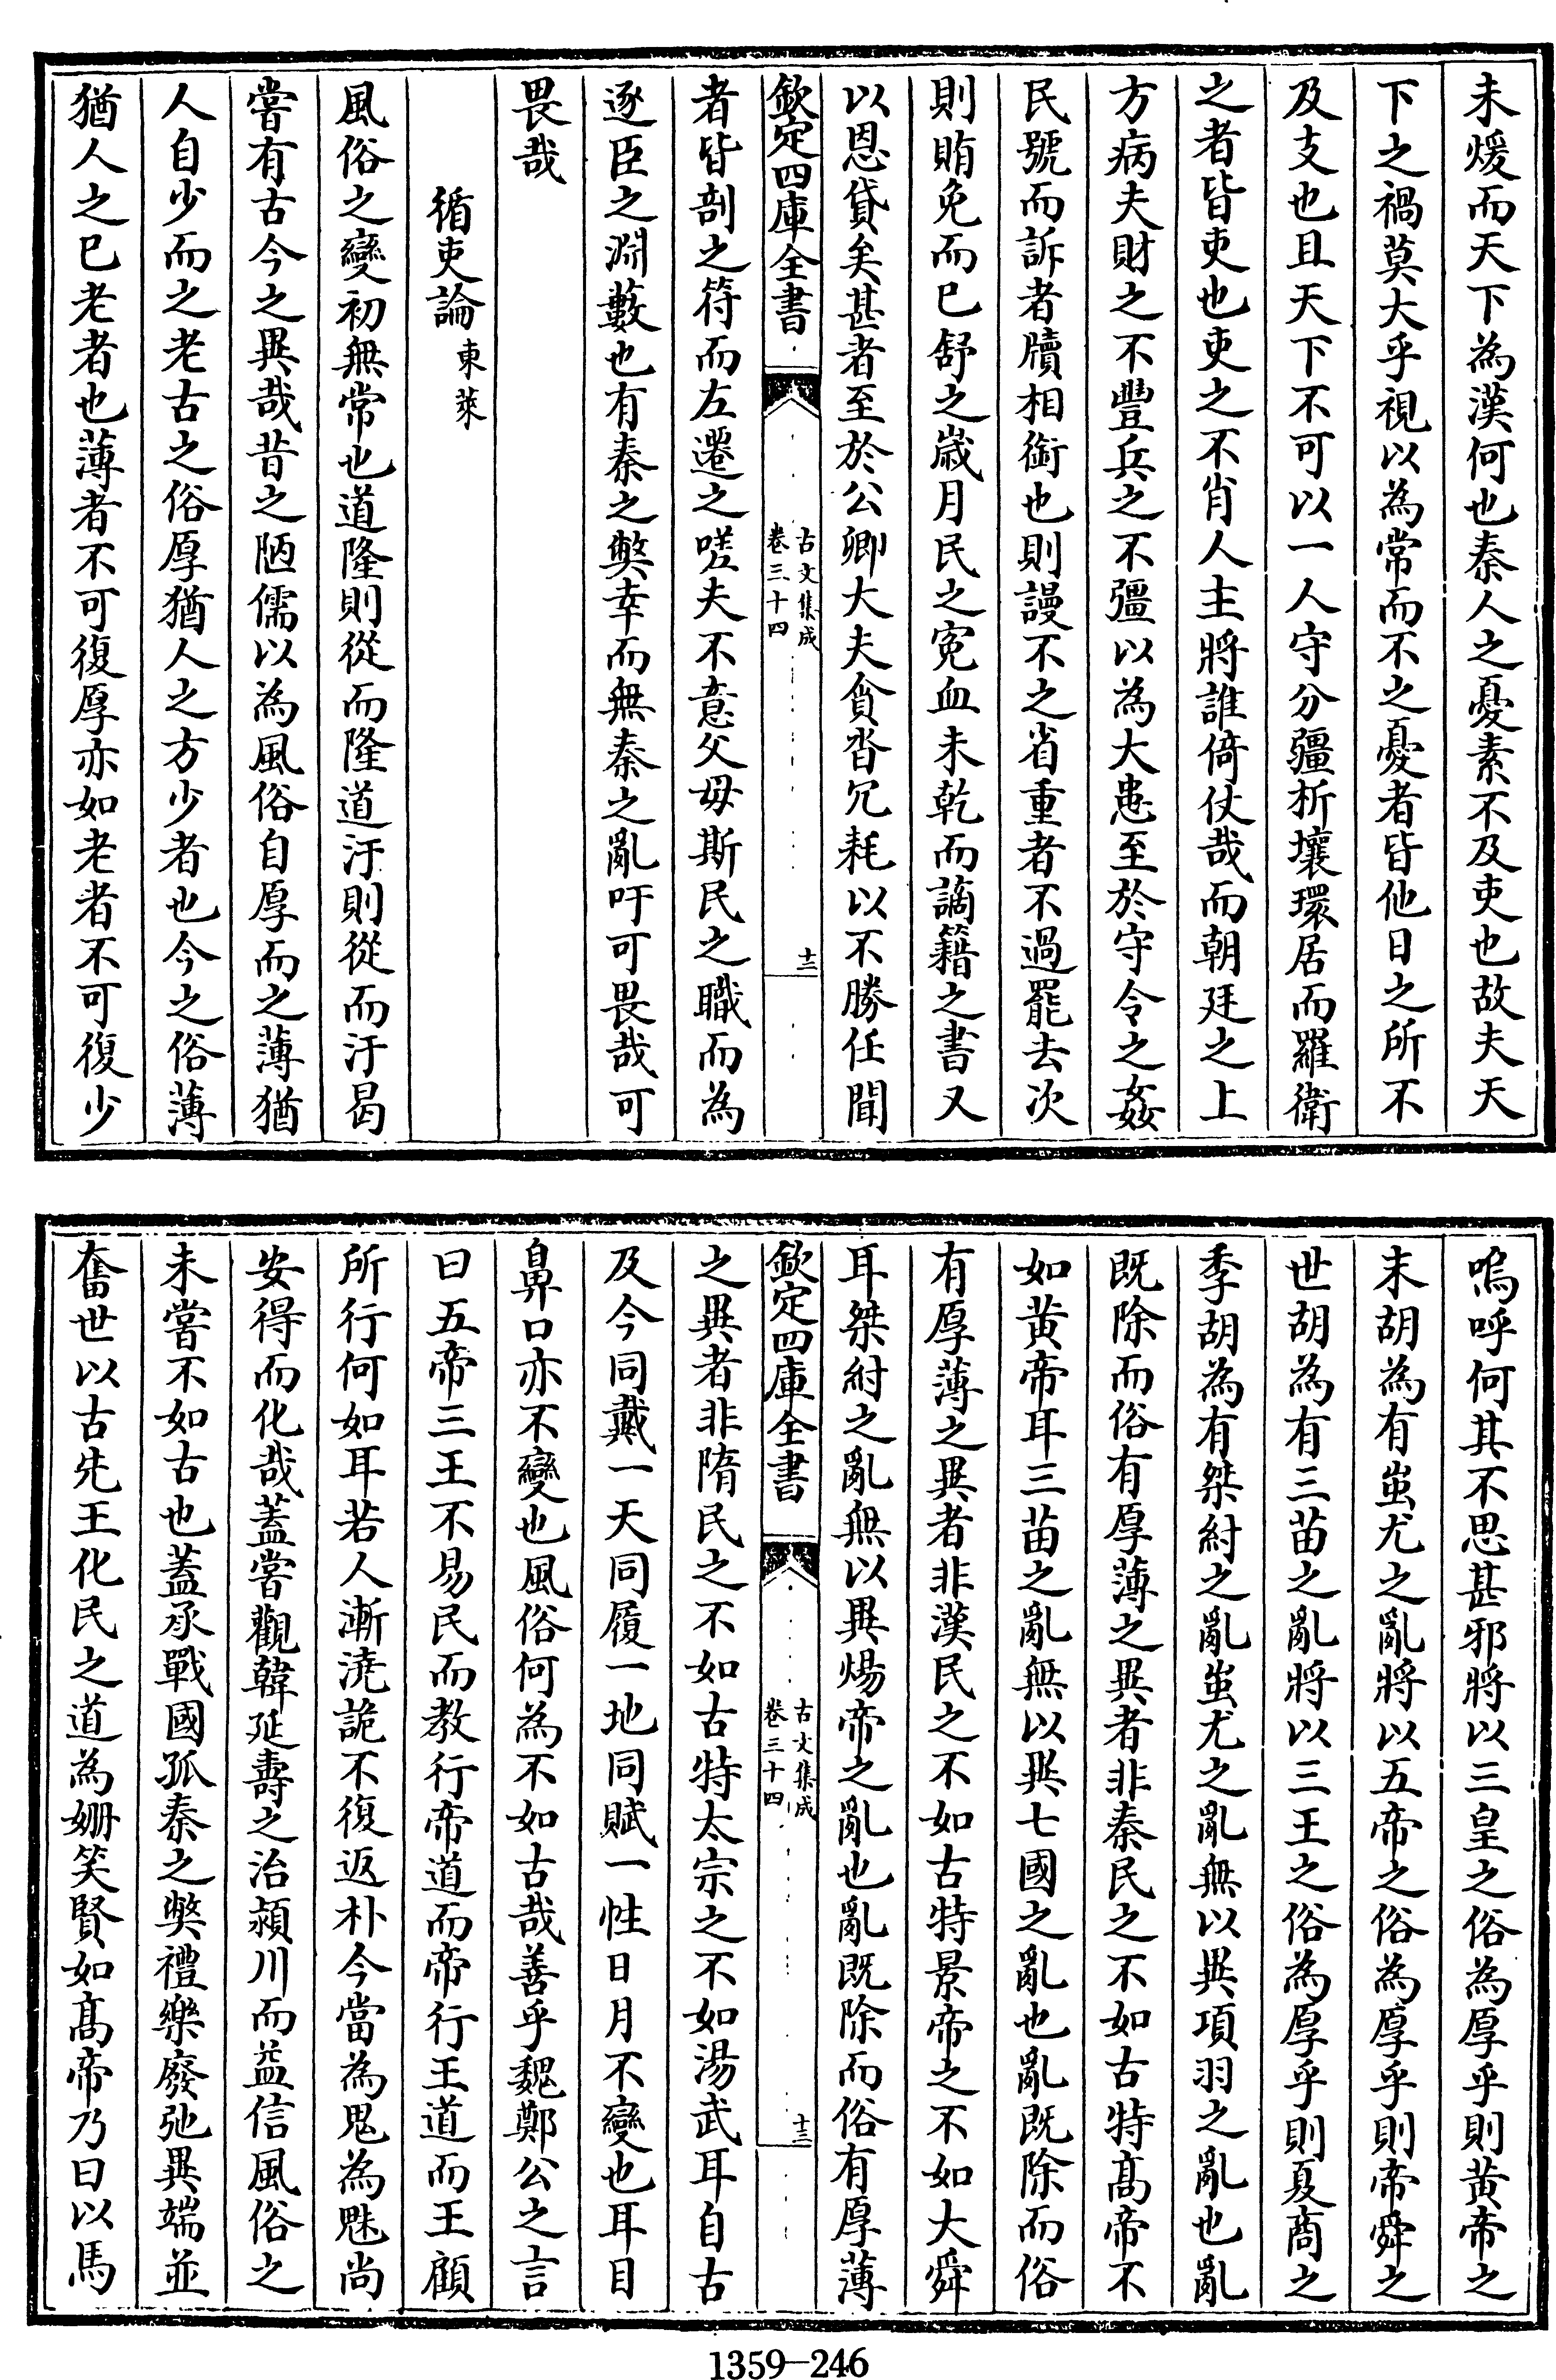 未煖而天下為漢何也秦人之憂素不及吏也故夫天
下之禍莫大乎視以為常而不之憂者皆他日之所不
及支也且天下不可以一人守分疆析壤環居而羅衛
之者皆吏也吏之不肖人主將誰倚仗哉而朝廷之上
方病夫財之不豐兵之不彊以為大患至於守令之姦
民號而訴者牘相銜也則謾不之省重者不過罷去次
則賄免而已舒之歲月民之寃血未乾而謫籍之書又
以恩貸矣甚者至於公卿大夫貪沓冗耗以不勝任聞
欽定四庫全書
古文集成
卷三十四
十二
者皆剖之符而左遷之嗟夫不意父母斯民之職而為
逐臣之淵藪也有秦之弊幸而無秦之亂吁可畏哉可
畏哉
循吏論 東萊
風俗之變初無常也道隆則從而隆道汙則從而汙曷
嘗有古今之異哉昔之陋儒以為風俗自厚而之薄猶
人自少而之老古之俗厚猶人之方少者也今之俗薄
猶人之已老者也薄者不可復厚亦如老者不可復少
嗚呼何其不思甚邪將以三皇之俗為厚乎則黃帝之
末胡為有蚩尤之亂將以五帝之俗為厚乎則帝舜之
世胡為有三苗之亂將以三王之俗為厚乎則夏商之
季胡為有桀紂之亂蚩尤之亂無以異項羽之亂也亂
既除而俗有厚薄之異者非秦民之不如古特高帝不
如黃帝耳三苗之亂無以異七國之亂也亂既除而俗
有厚薄之異者非漢民之不如古特景帝之不如大舜
耳桀紂之亂無以異煬帝之亂也亂既除而俗有厚薄
欽定四庫全書
古文集成
卷三十四
十三
之異者非隋民之不如古特太宗之不如湯武耳自古
及今同戴一天同履一地同賦一性日月不變也耳目
鼻口亦不變也風俗何為不如古哉善乎魏鄭公之言
曰五帝三王不易民而教行帝道而帝行王道而王顧
所行何如耳若人漸澆詭不復返朴今當為鬼為魅尚
安得而化哉蓋嘗觀韓延壽之治潁川而益信風俗之
未嘗不如古也蓋承戰國孤秦之弊禮樂廢弛異端並
奮世以古先王化民之道為姍笑賢如高帝乃曰以馬
1359—246